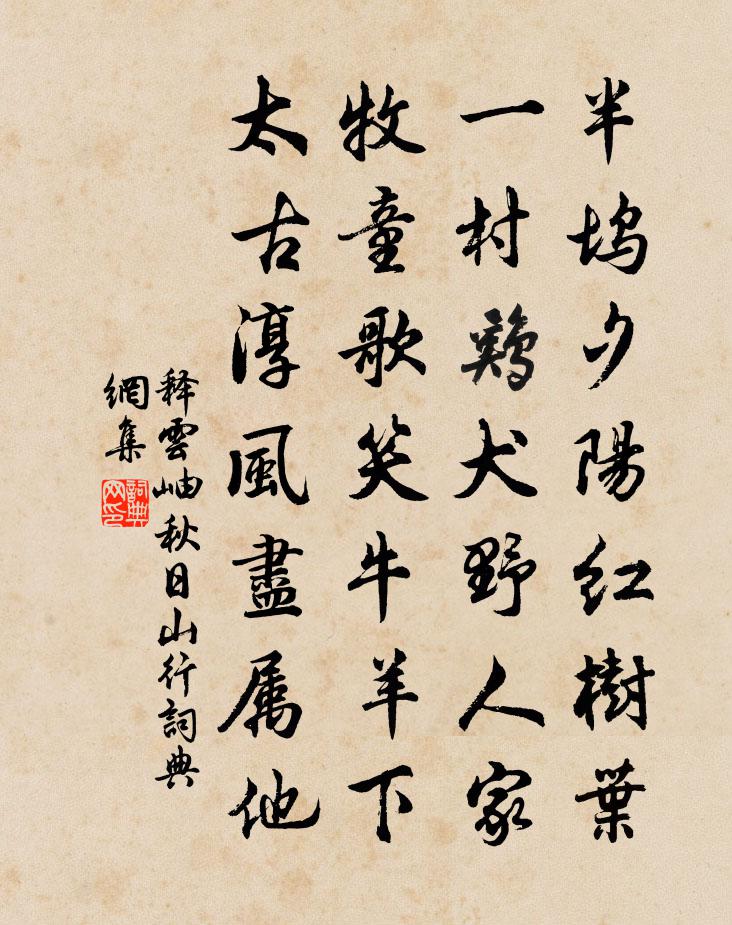 半塢夕陽紅樹葉
一村鷄犬野人家
牧童歌笑牛羊下
太古淳風盡属他
释雲岫秋日山行詞典
網集
詞典
网印